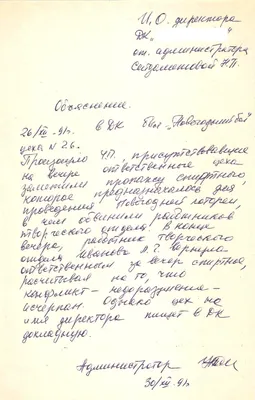 И.О. директора
ДК „ "
от администратора
Сейдаметовой Н.П.
Объяснение.
26/XII-91г. в ДК был „Новогодний бал"
цеха N 26.
Произошло ЧП, присутствовавшие
на вечере ответственные цеха
заметили пропажу спиртного,
которое предназначалось для
проведения Новогодней лотереи,
в чем обвинили работников
творческого отдела. В конце
вечера, работник творческого
отдела Иванова Л? вернула
ответственным за вечер спиртное,
рассчитывая на то, что
конфликт - недоразумение -
исчерпан. Однако цех на
имя директора пишет в ДК
докладную.
Администратор
30/XII-91